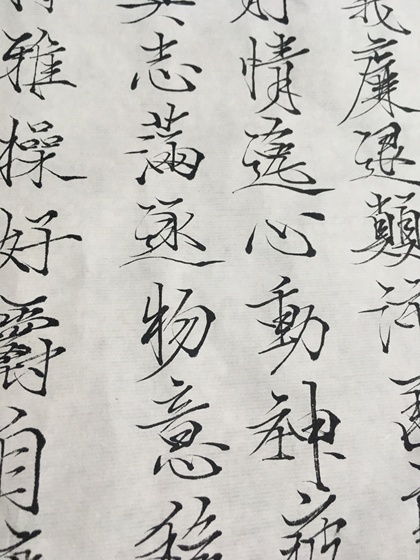 義廉退顛沛匪
情逸心動神疲
真志滿逐物意移
雅操好爵自